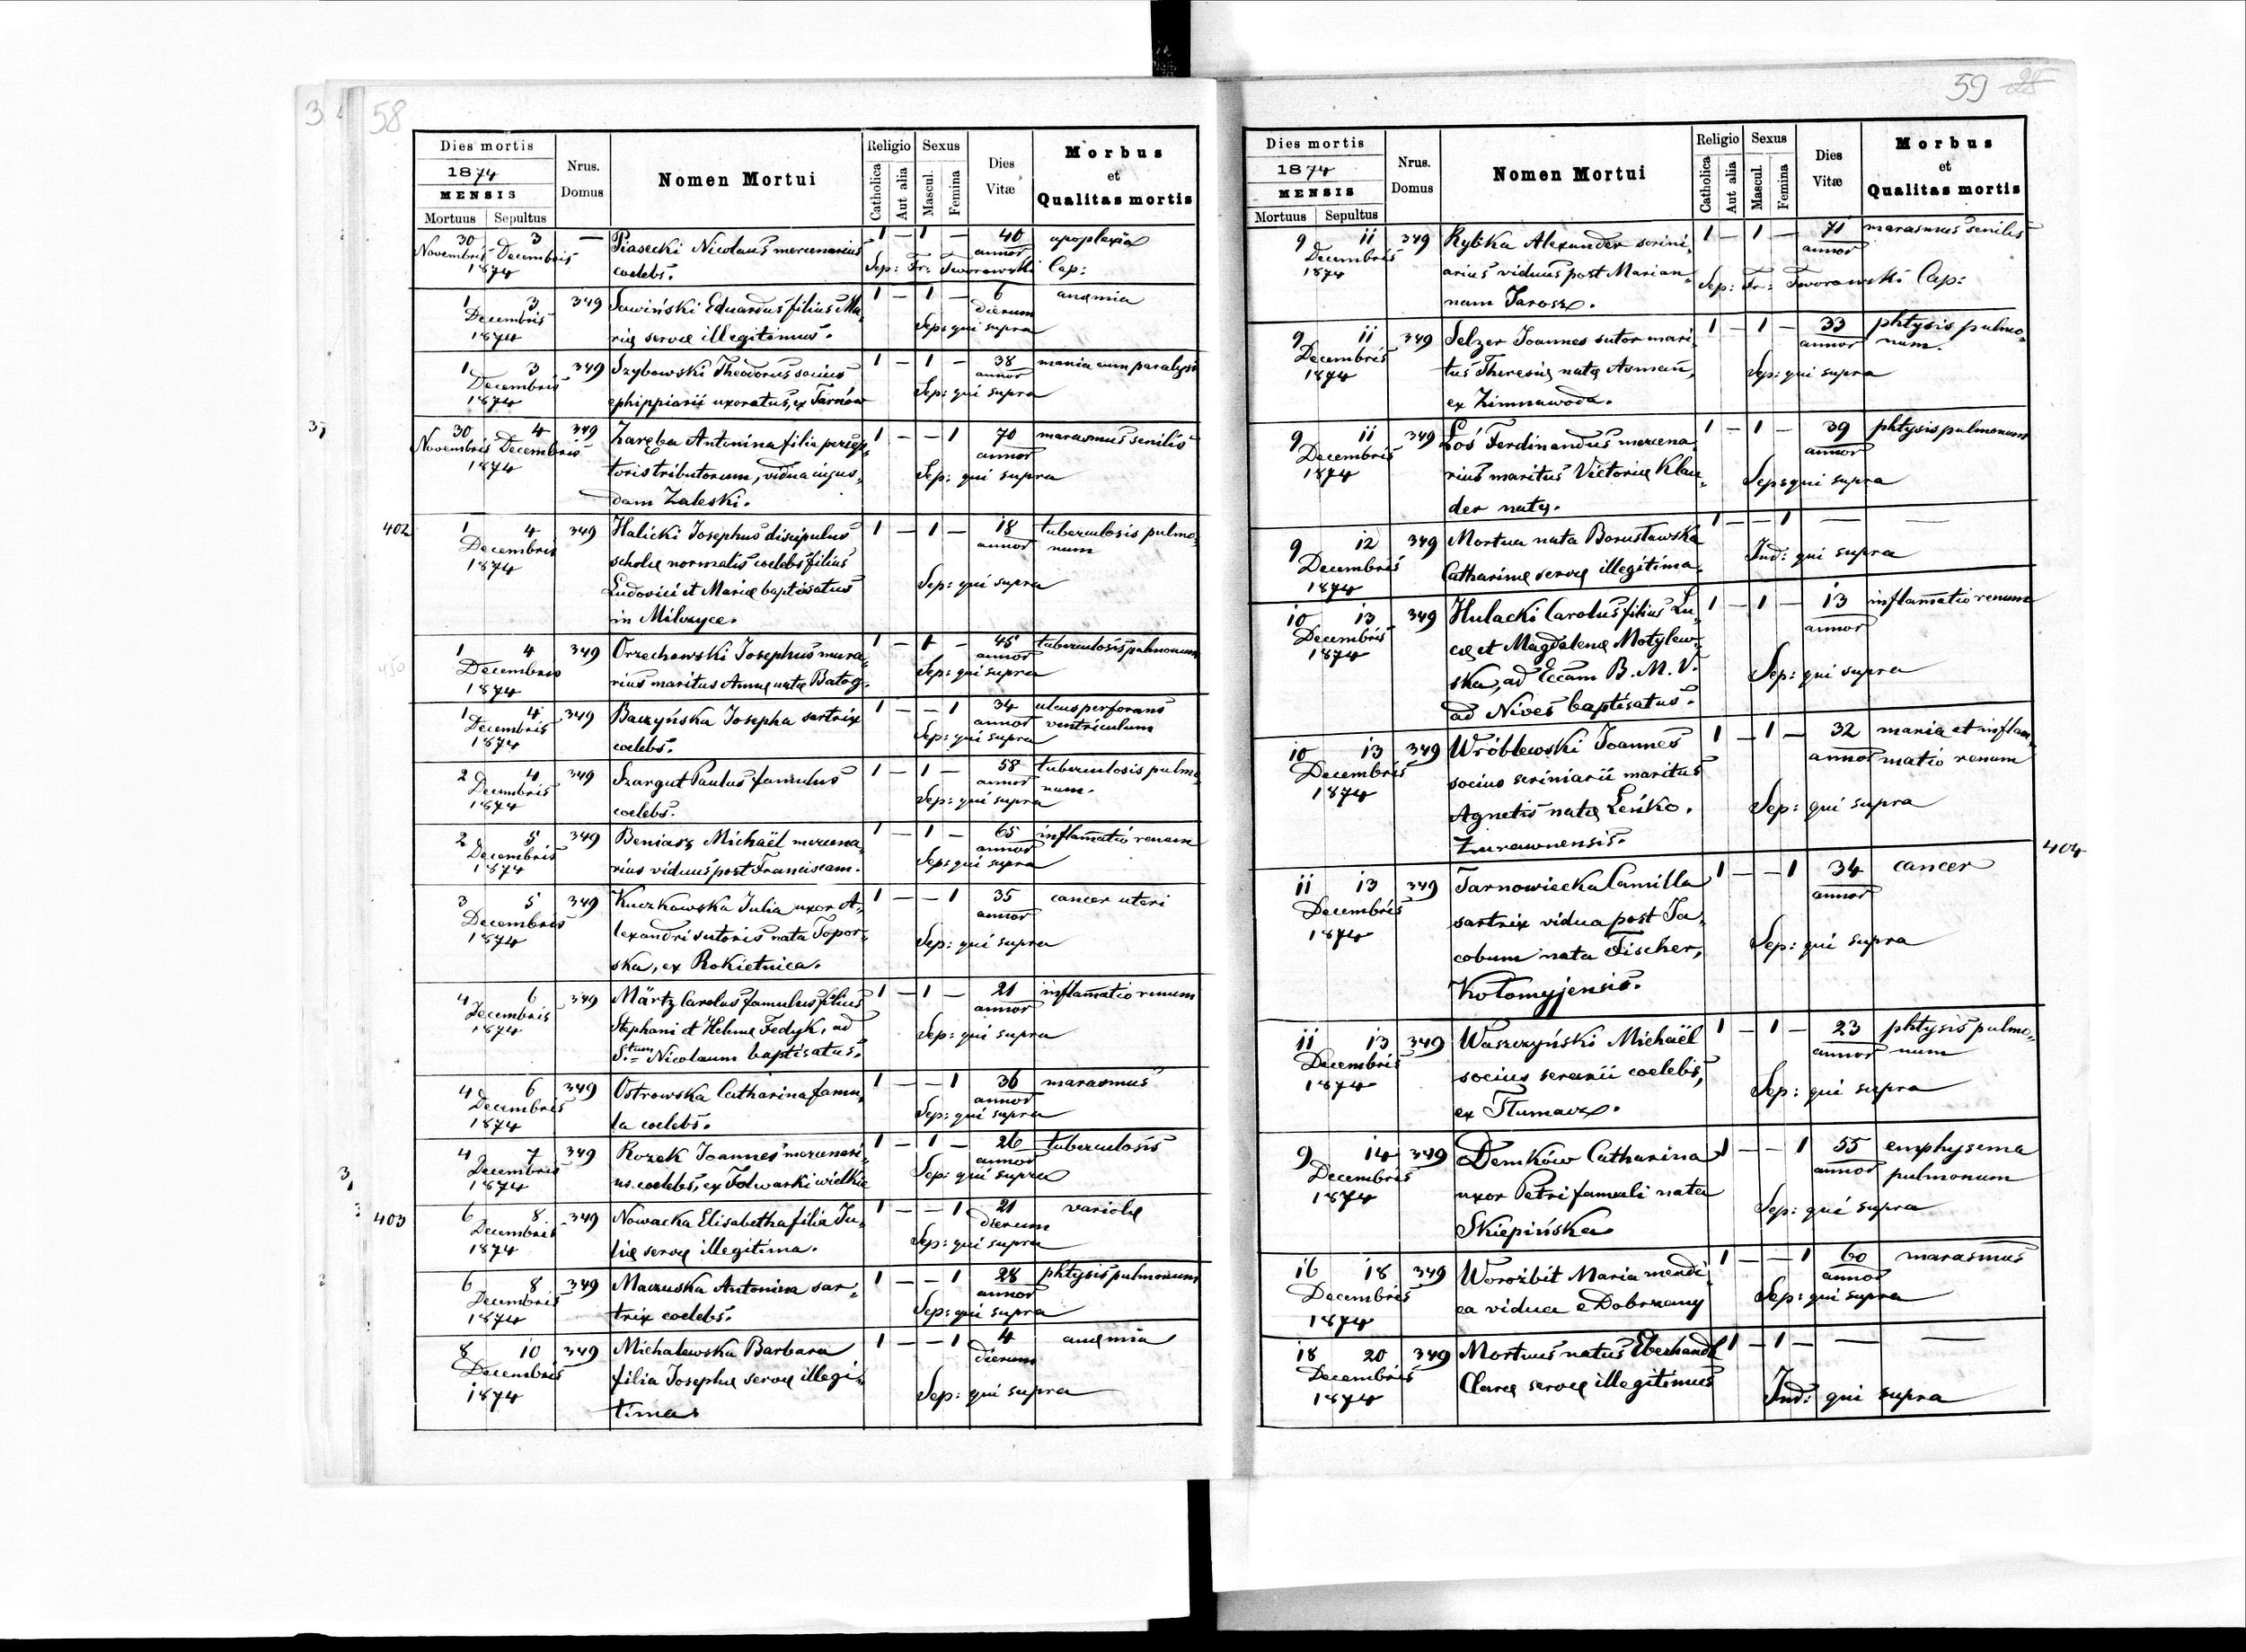 58
Dies mortis
1874
MENSIS
Mortuus Sepultus
Nrus. Domus
Nomen Mortui
Religio
Catholica
Aut alia
Sexus
Mascul.
Femina
Dies Vitæ
Morbus et Qualitas mortis
30 3 — Piasecki Nicolaus mercenarius 1 — 1 — 40 apoplexia
Novembris Decembris coelebs. annor
1874 Sep: Fr: Tworowski Cap:
1 3 349 Sawiński Eduardus filius Ma- 1 — 1 — 6 anęmia
Decembris rię servę illegitimus. dierum
1874 Sep: qui supra
1 3 349 Szybowski Theodorus socius 1 — 1 — 38 mania cum paralysi
Decembris ephippiarii uxoratus, ex Tarnów annor
1874 Sep: qui supra
30 4 349 Zaręba Antonina filia percep- 1 — — 1 70 marasmus senilis
Novembris Decembris toris tributorum, vidua cujus- annor
1874 dam Zaleski. Sep: qui supra
402
1 4 349 Halicki Josephus discipulus 1 — 1 — 18 tuberculosis pulmo-
Decembris scholę normalis coelebs filius annor num
1874 Ludovici et Marię baptisatus Sep: qui supra
in Milczyce.
1 4 349 Orzechowski Josephus mura- 1 — 1 — 45 tuberculosis pulmonum
Decembris rius maritus Annę natę Batog. annor
1874 Sep: qui supra
1 4 349 Baczyńska Josepha sartrix 1 — — 1 34 ulcus perforans
Decembris coelebs. annor ventriculum
1874 Sep: qui supra
2 4 349 Szargut Paulus famulus 1 — 1 — 58 tuberculosis pulmo-
Decembris coelebs. annor num.
1874 Sep: qui supra
2 5 349 Beniasz Michaël mercena- 1 — 1 — 65 inflamatio renum
Decembris rius viduus post Franciscam. annor
1874 Sep: qui supra
3 5 349 Kuczkowska Julia uxor A- 1 — — 1 35 cancer uteri
Decembris lexandri sutoris nata Topor- annor
1874 ska, ex Rokietnica. Sep: qui supra
4 6 349 Märtz Carolus famulus filius 1 — 1 — 21 inflamatio renum
Decembris Stephani et Helenę Fedyk, ad annor
1874 S.tum Nicolaum baptisatus. Sep: qui supra
4 6 349 Ostrowska Catharina famu- 1 — — 1 36 marasmus
Decembris la coelebs. annor
1874 Sep: qui supra
4 7 349 Rozek Joannes mercenari- 1 — 1 — 26 tuberculosis
Decembris us coelebs, ex Folwarki wielkie annor
1874 Sep: qui supra
403
6 8 349 Nowacka Elisabetha filia Ju- 1 — — 1 21 variolę
Decembris lię servę illegitima. dierum
1874 Sep: qui supra
6 8 349 Maczuska Antonina sar- 1 — — 1 28 phtysis pulmonum
Decembris trix coelebs. annor
1874 Sep: qui supra
8 10 349 Michalewska Barbara 1 — — 1 4 anęmia
Decembris filia Josephę servę illegi- dierum
1874 tima Sep: qui supra
59
Dies mortis
1874
MENSIS
Mortuus Sepultus
Nrus. Domus
Nomen Mortui
Religio
Catholica
Aut alia
Sexus
Mascul.
Femina
Dies Vitæ
Morbus et Qualitas mortis
9 11 349 Rybka Alexander scrini- 1 — 1 — 71 marasmus senilis
Decembris arius viduus post Marian- annor
1874 nam Jarosz. Sep: Fr: Tworowski Cap:
9 11 349 Selzer Joannes sutor mari- 1 — 1 — 33 phtysis pulmo-
Decembris tus Theresię natę Asman, annor num.
1874 ex Zimnawoda. Sep: qui supra
9 11 349 Łoś Ferdinandus mercena- 1 — 1 — 39 phtysis pulmonum
Decembris rius maritus Victorię Klau- annor
1874 der natę. Sep: qui supra
9 12 349 Mortua nata Borusławska 1 — — 1 — —
Decembris Catharinę servę illegitima. Ind: qui supra
1874
10 13 349 Hulacki Carolus filius Lu- 1 — 1 — 13 inflamatio renum
Decembris cę et Magdalenę Motylew- annor
1874 ska, ad Eccam B. M. V. Sep: qui supra
ad Nives baptisatus.
10 13 349 Wróblewski Joannes 1 — 1 — 32 mania et inflam-
Decembris socius scriniarii maritus annor matio renum
1874 Agnetis natę Leńko. Sep: qui supra
Zurawnensis.
404
11 13 349 Tarnowiecka Camilla 1 — — 1 34 cancer
Decembris sartrix vidua post Ja- annor
1874 cobum nata Fischer, Sep: qui supra
Kołomyjensis.
11 13 349 Waszczyński Michaël 1 — 1 — 23 phtysis pulmo-
Decembris socius serarii coelebs, annor num
1874 ex Tłumacz. Sep: qui supra
9 14 349 Demków Catharina 1 — — 1 55 emphysema
Decembris uxor Petri famuli nata annor pulmonum
1874 Skiepińska Sep: qui supra
16 18 349 Worożbit Maria mendi- 1 — — 1 60 marasmus
Decembris ca vidua e Dobrzany annor
1874 Sep: qui supra
18 20 349 Mortuus natus Eberhandl 1 — 1 — — —
Decembris Clarę servę illegitimus
1874 Ind: qui supra